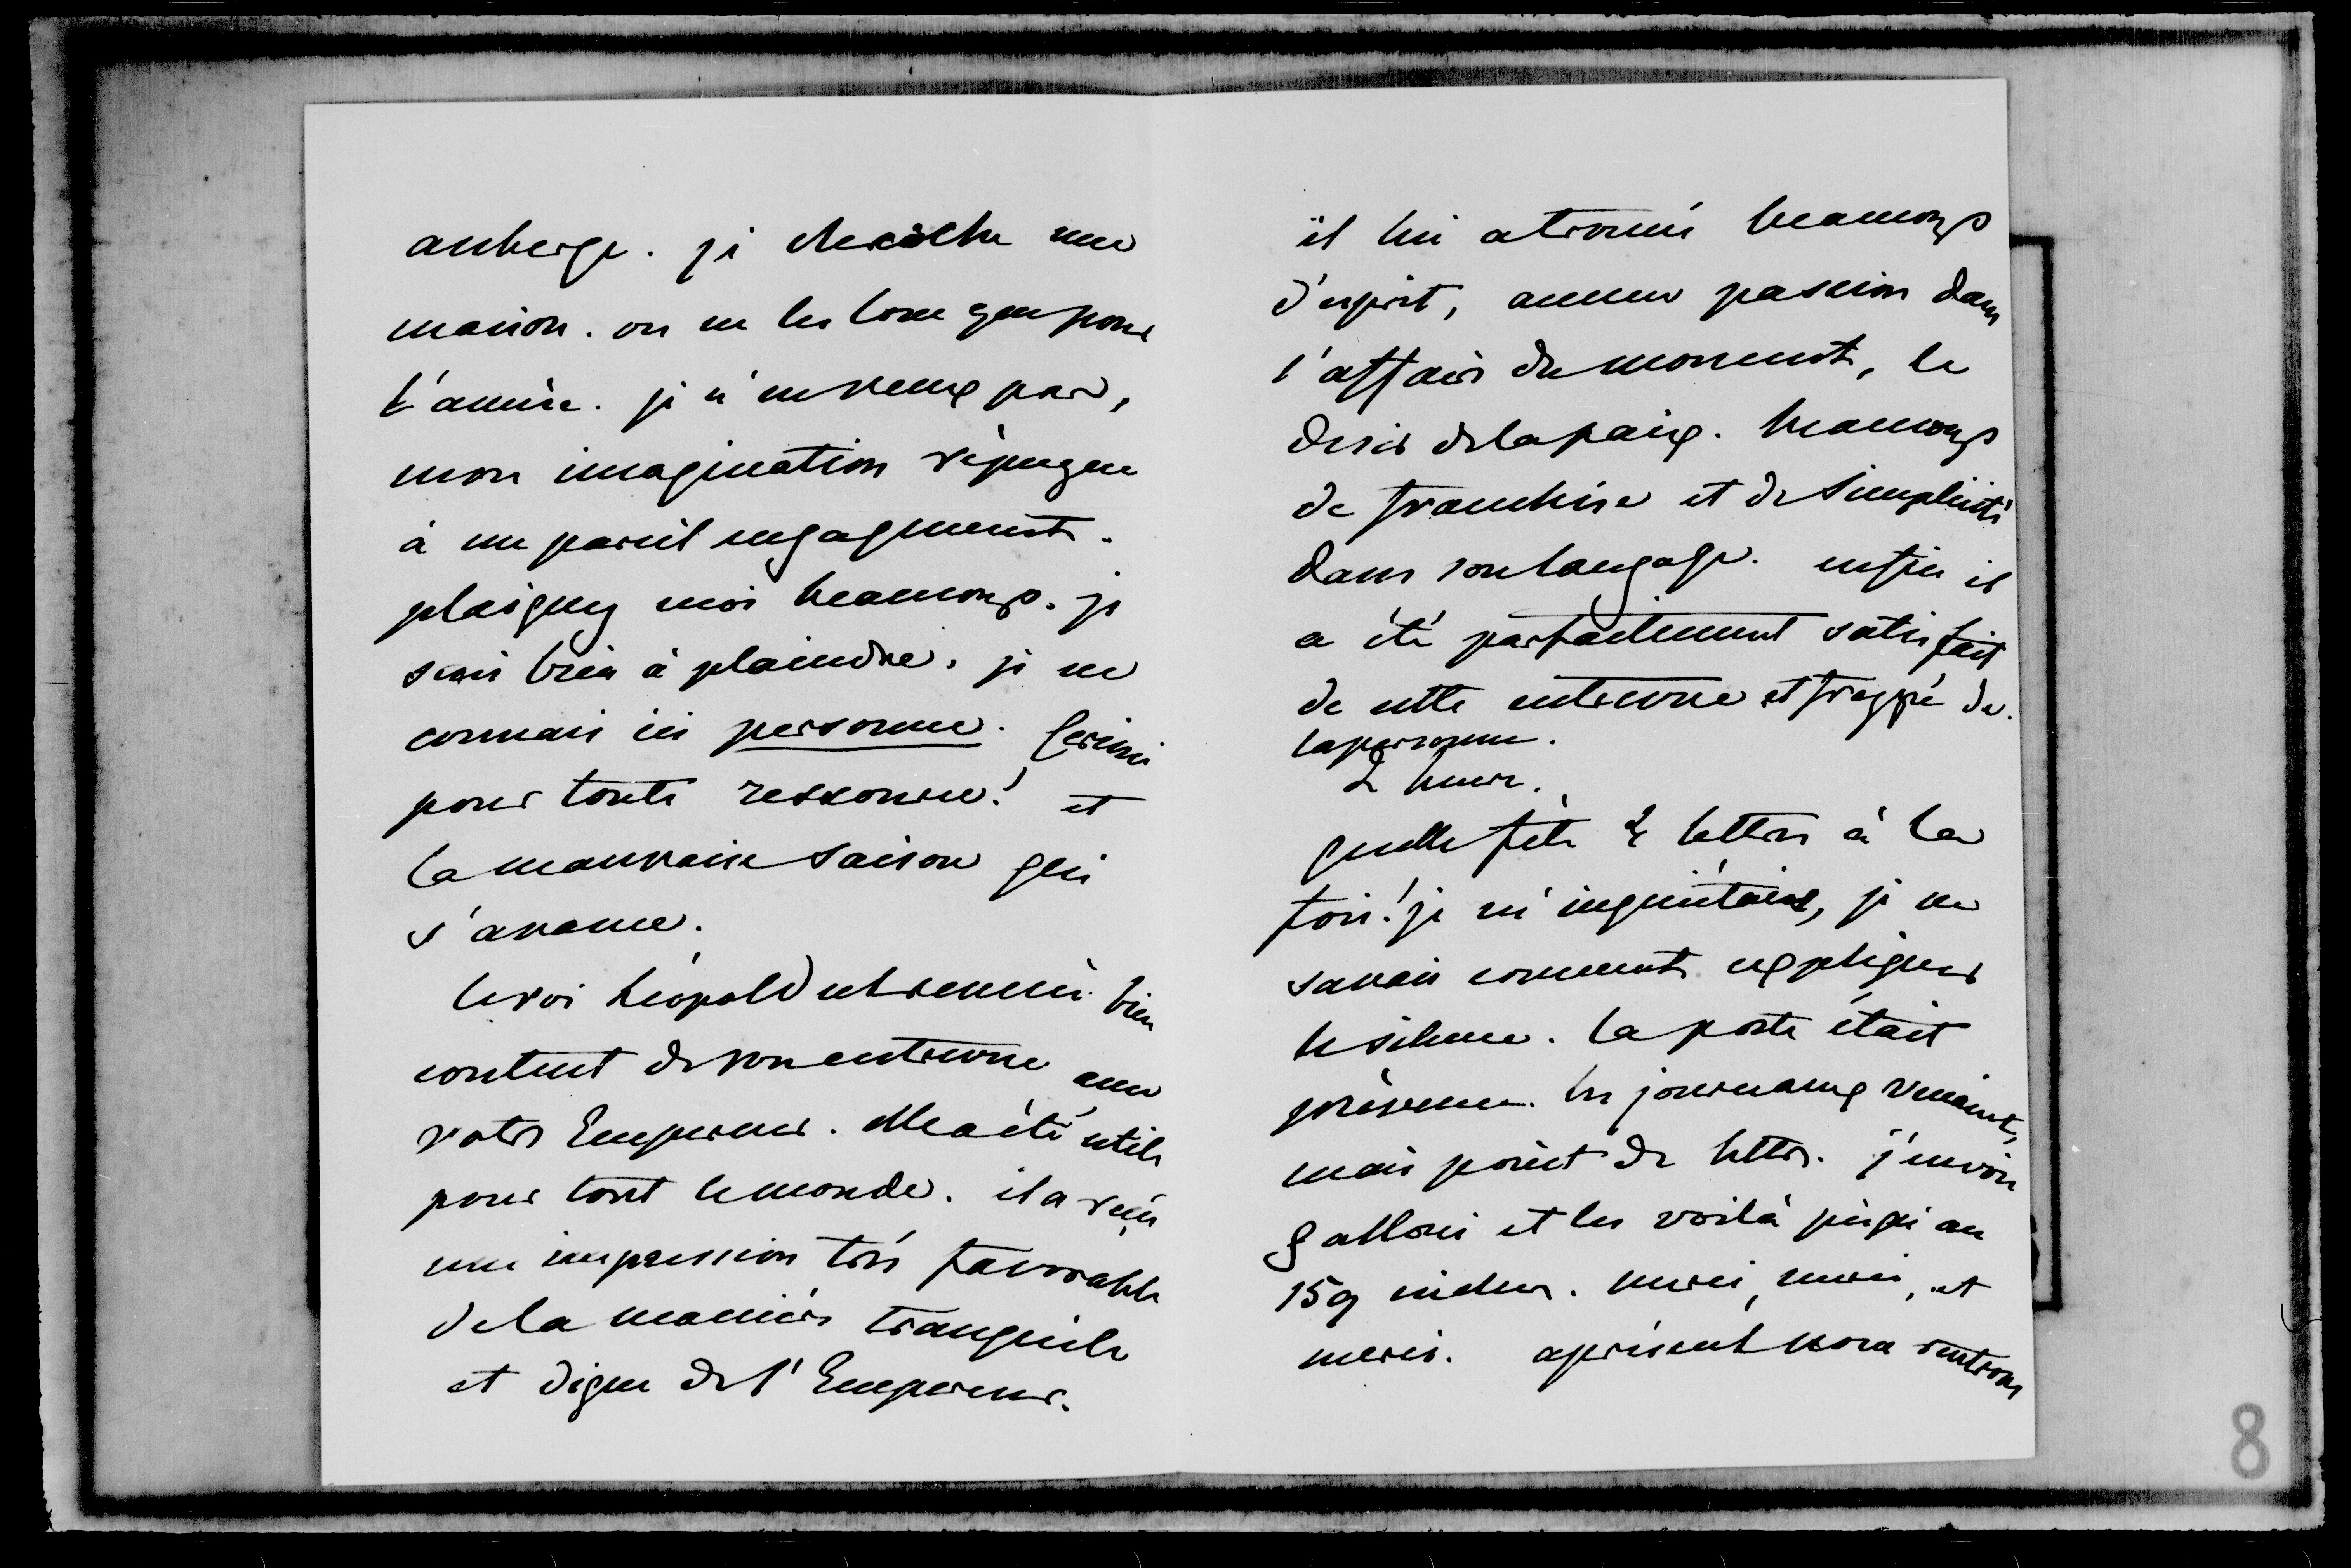 auberge. je cherche une
maison. on ne les loue que pour
l'année. je n'en veux pas,
mon imagination répugne
à un pareil engagement.
plaignez moi beaucoup. je
suis bien à plaindre. je ne
connais ici personne. Crimi
pour toute ressource! et
la mauvaise saison qui
s'avance.
le roi Léopold est revenu bien
content de son entrevue avec
votre Empereur. Elle a été utile
pour tout le monde. il a reçu
une impression très favorable
de la manière tranquile
et digne de l'Empereur.
il lui a trouvé beaucoup
d'esprit, aucune passion dans
l'affaire du moment, le
desir de la paix. beaucoup
de franchise et de simplicité
dans son langage. enfin il
a été parfaitement satisfait
de cette entrevue et frappé de
la personne.
2 heures.
quelle fête 2 lettres à la
fois! je m'inquiétais, je ne
savais comment expliquer
le silence. la poste était
prévenue. les journaux venaient,
mais point de lettre. j'envoie
gallois et les voilà jusqu'au
159 inclus. merci, merci, et
merci. aprésent nous rentrons
8